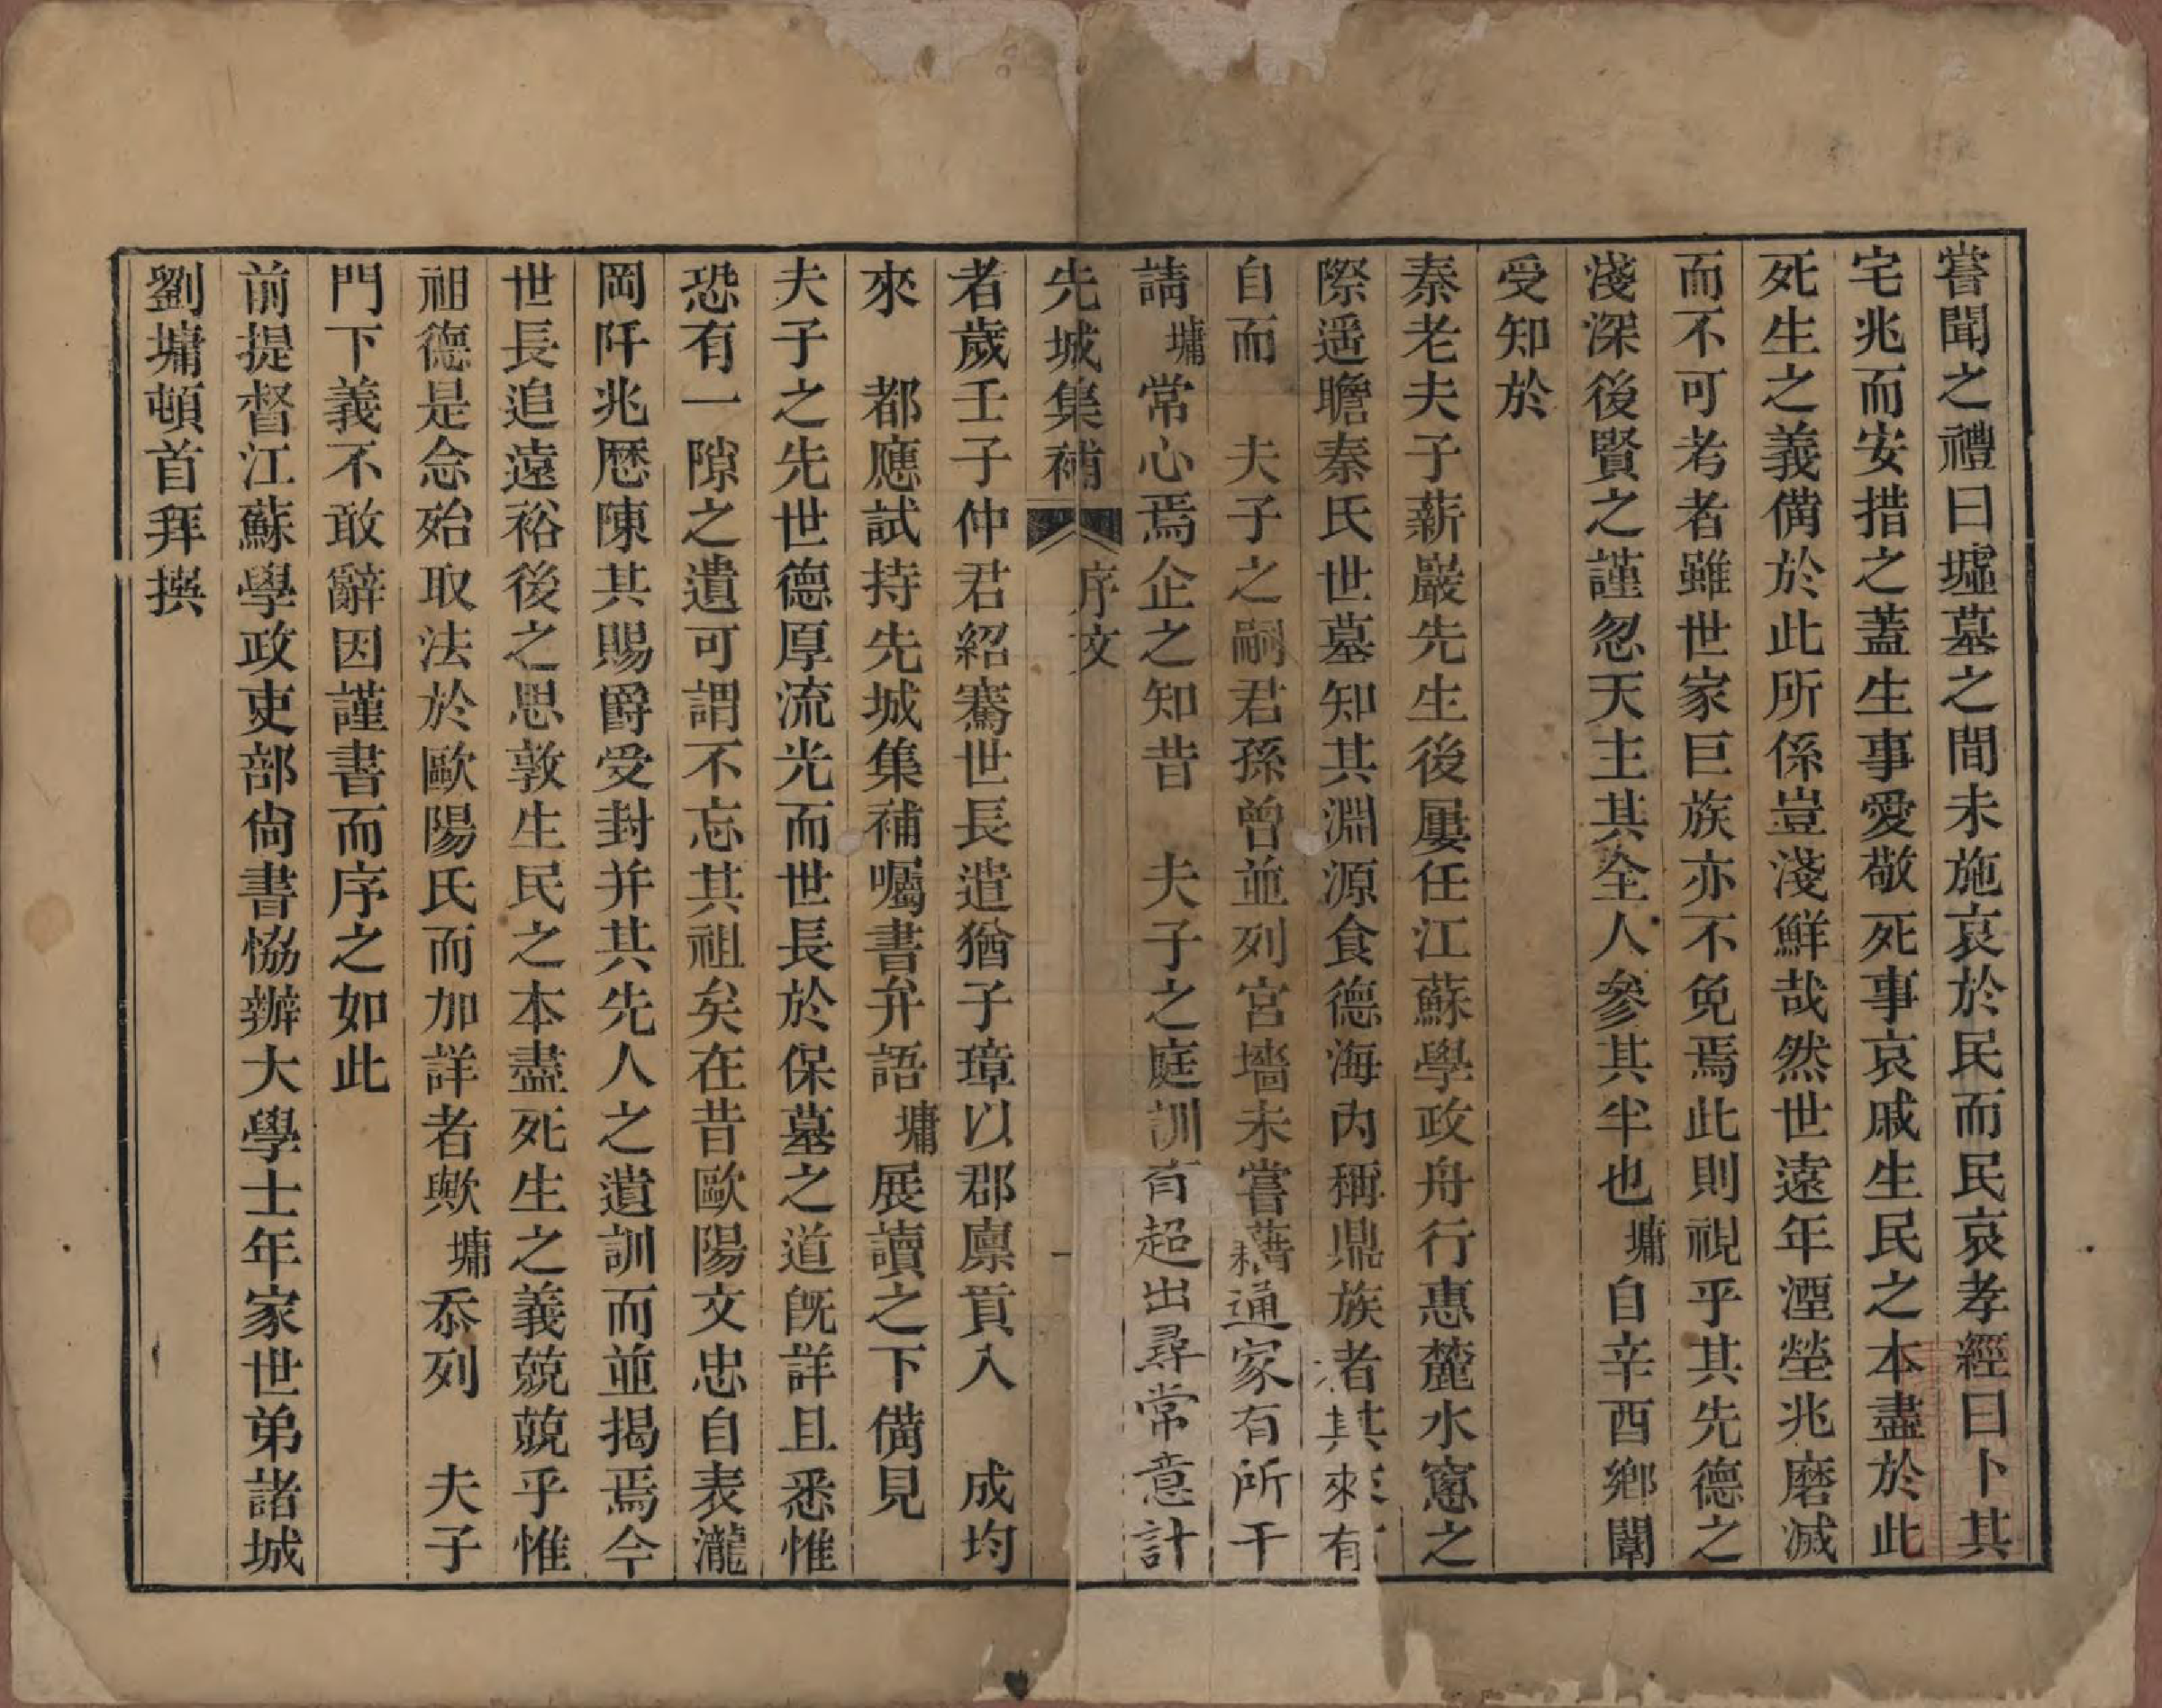 嘗聞之禮曰墟墓之間未施哀於民而民哀孝經曰卜其
宅兆而安措之蓋生事愛敬死事哀戚生民之本盡於此
死生之義備於此所係豈淺鮮哉然世遠年湮塋兆磨滅
而不可考者雖世家巨族亦不免焉此則視乎其先德之
淺深後賢之謹忽天主其全人參其半也墉自辛酉鄉闈
受知於
秦老夫子薪巖先生後屢任江蘇學政舟行惠麓水窻之
際遥瞻秦氏世墓知其淵源食德海內稱鼎族者其來有
自而　夫子之嗣君孫曾並列宮墻未嘗藉通家有所干
請墉常心焉企之知昔　夫子之庭訓有超出尋常意計
先城集補　序文　一
者歲壬子仲君紹騫世長遣猶子璋以郡廩貢入　成均
來　都應試持先城集補囑書弁語墉展讀之下備見
夫子之先世德厚流光而世長於保墓之道旣詳且悉惟
恐有一隙之遺可謂不忘其祖矣在昔歐陽文忠自表瀧
岡阡兆厯陳其賜爵受封并其先人之遺訓而並揭焉今
世長追遠裕後之思敦生民之本盡死生之義兢兢乎惟
祖德是念殆取法於歐陽氏而加詳者歟墉忝列　夫子
門下義不敢辭因謹書而序之如此
前提督江蘇學政吏部尙書恊辦大學士年家世弟諸城
劉墉頓首拜撰